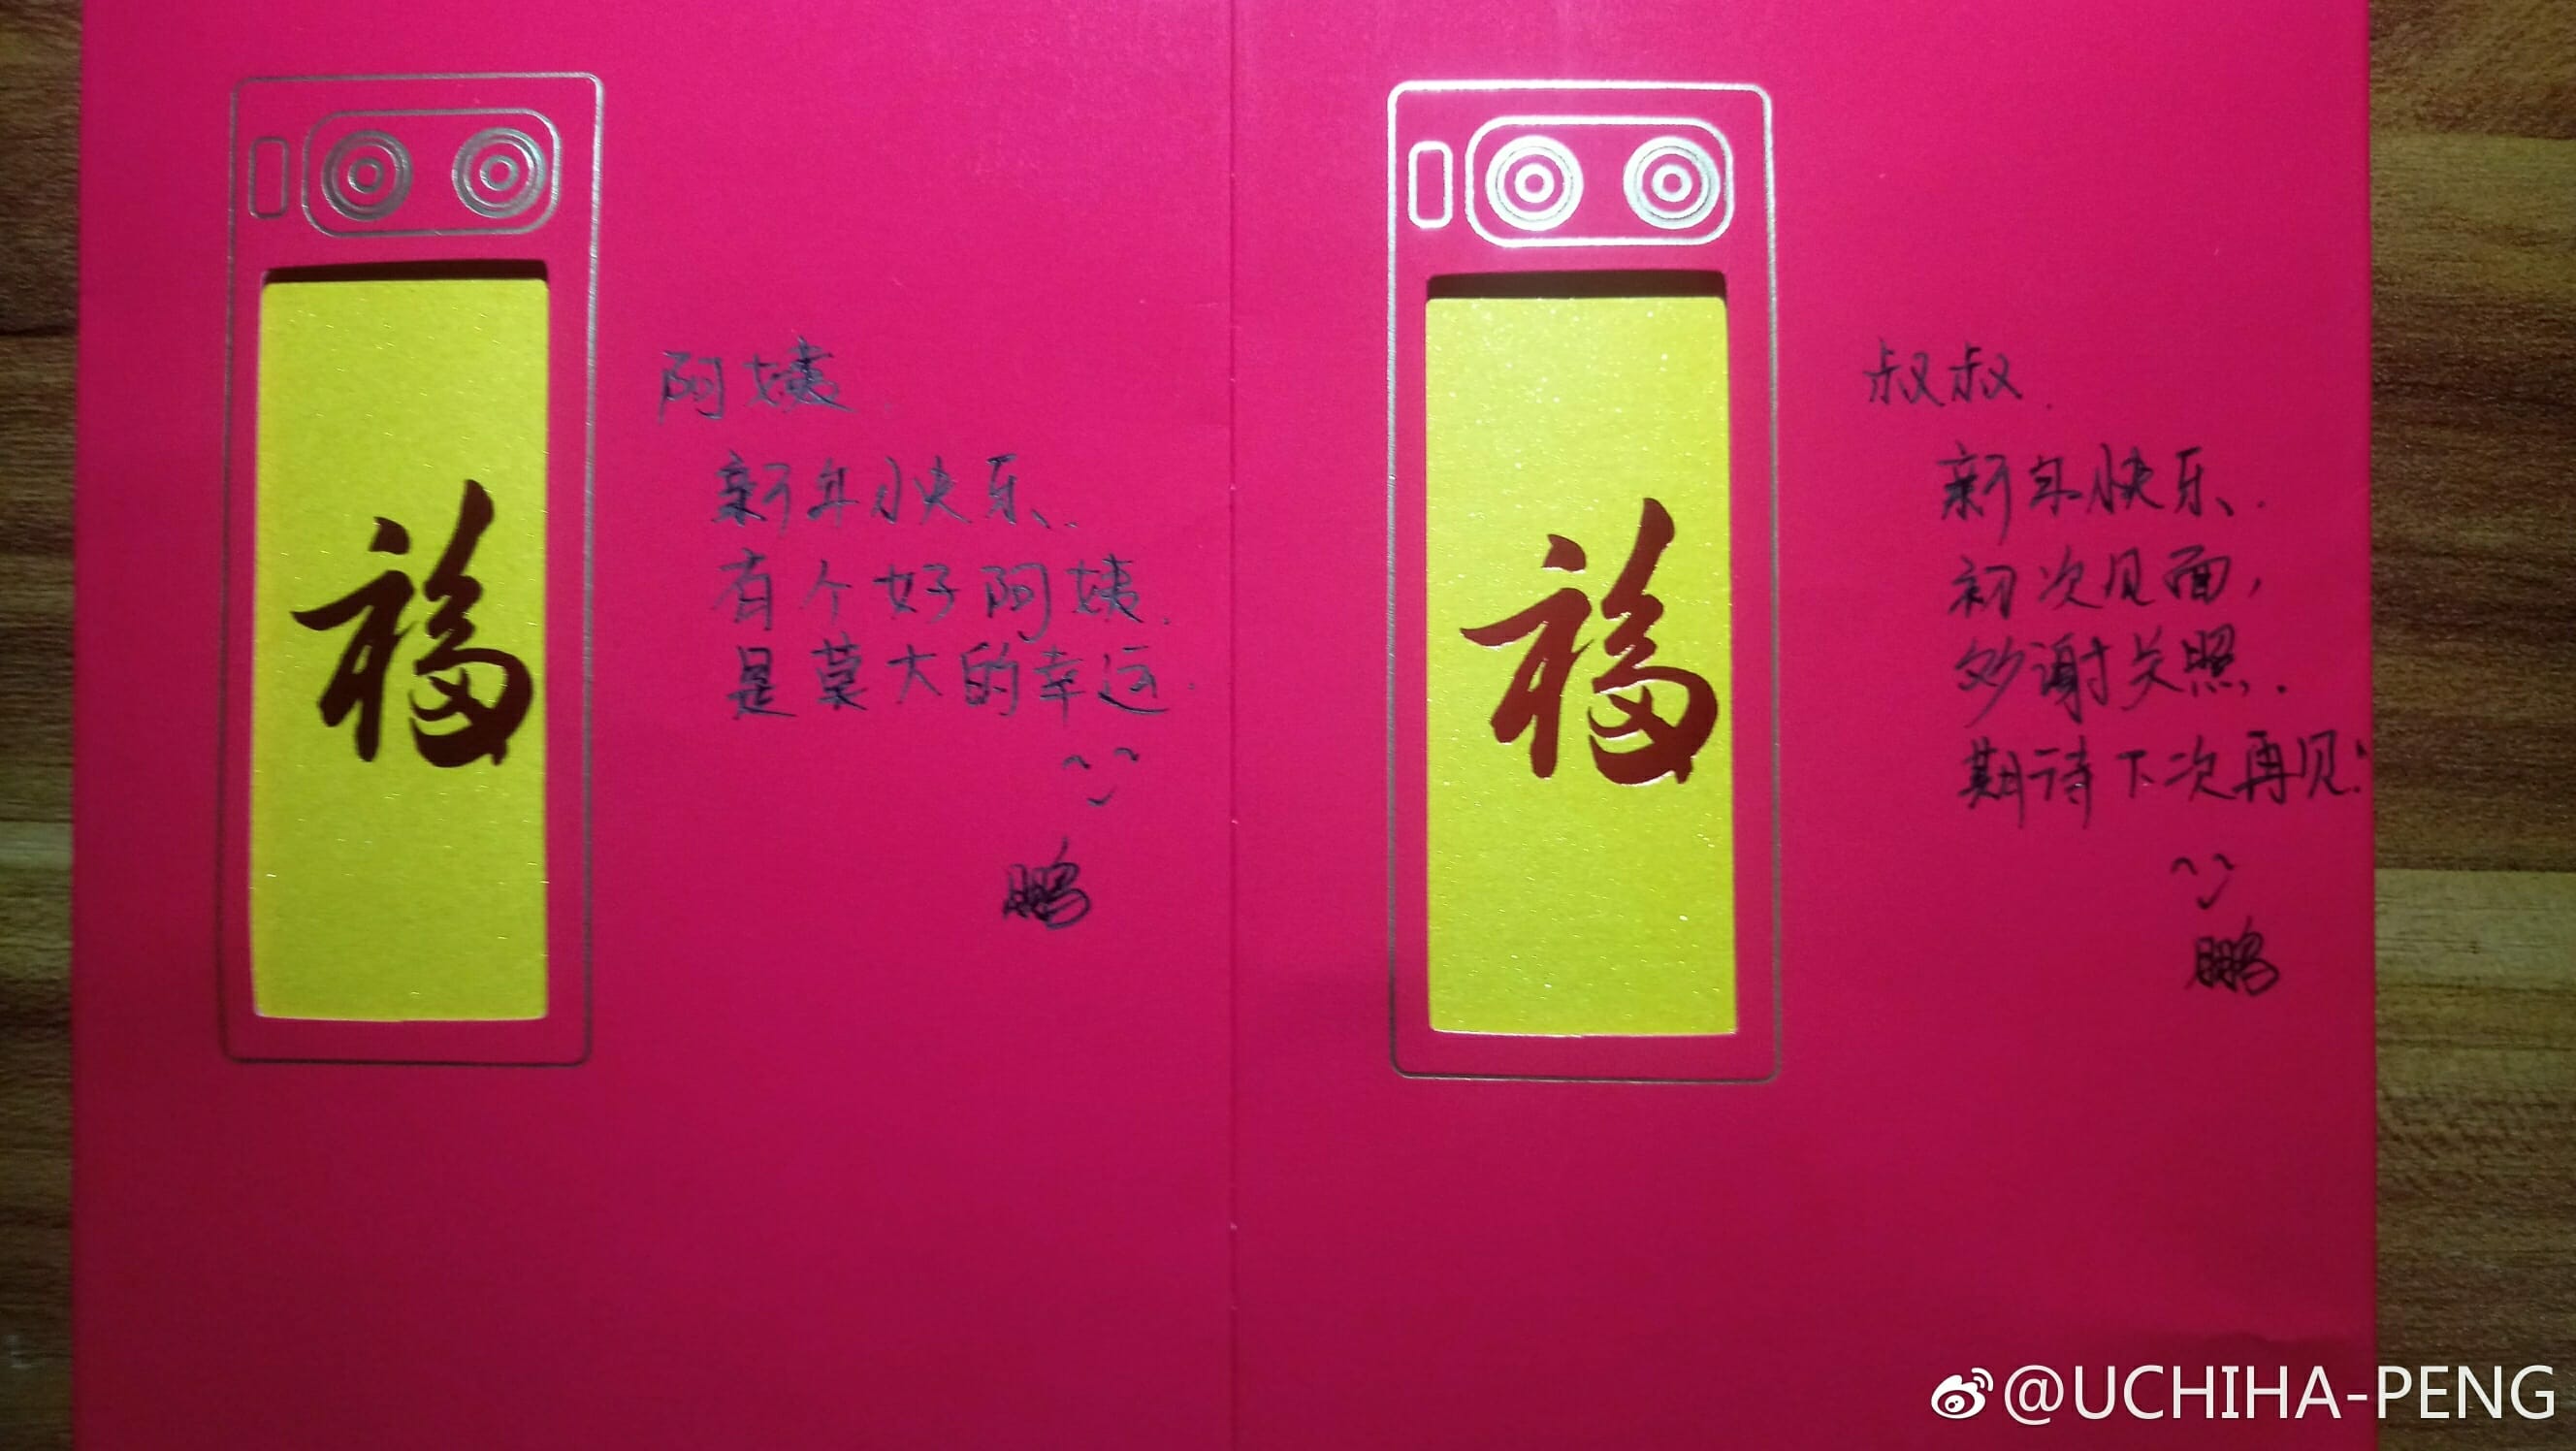 福
阿姨.
新年快乐.
有个好阿姨.
是莫大的幸运.
鹏
福
叔叔.
新年快乐.
初次见面,
多谢关照.
期待下次再见!
鹏
@UCHIHA-PENG